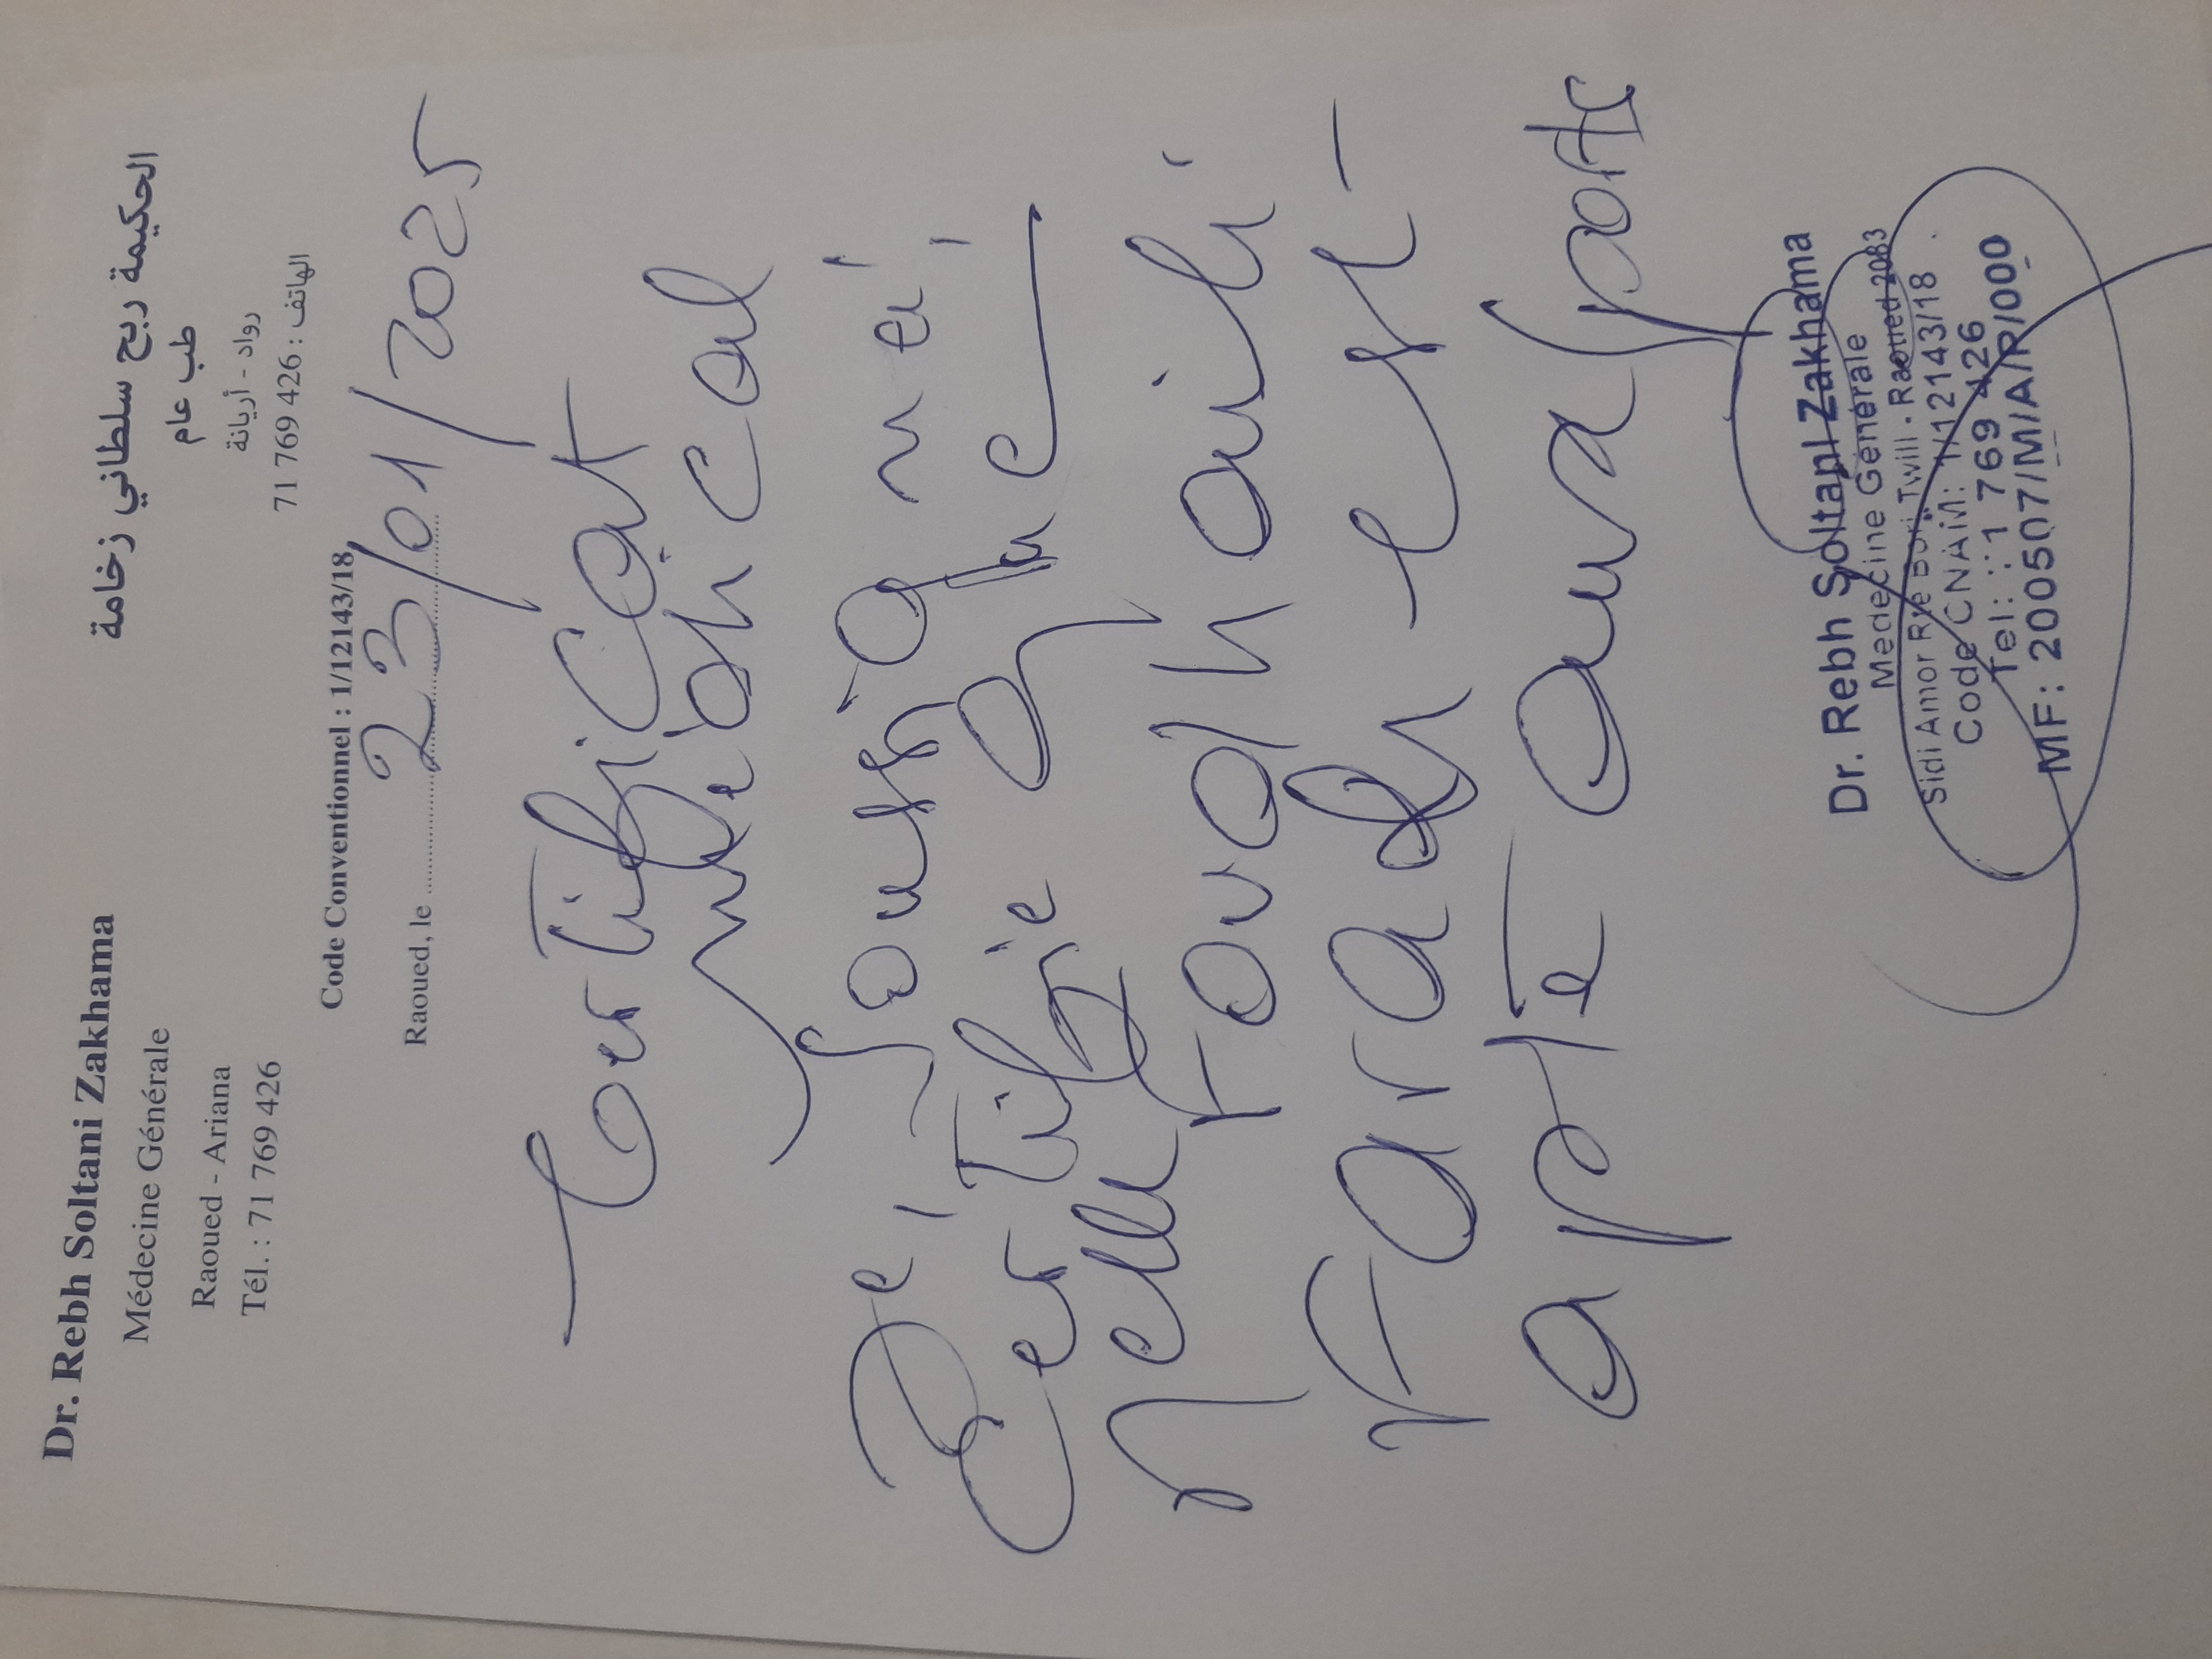 Dr. Rebh Soltani Zakhama
Médecine Générale
Raoued - Ariana
Tél. : 71 769 426
الحكيمة ربح سلطاني زخامة
طب عام
رواد - أريانة
الهاتف : 426 769 71
Code Conventionnel : 1/12143/18
Raoued, le 23/01/2025
Certificat
médical
Je, soussigné,
certifie que
Melle
est
apte aux sports
Dr. Rebh Soltani Zakhama
Medecine Générale
Sidi Amor Raoued 2083
Code CNAM: 1/12143/18
Tel: 71 769 426
MF: 200507/M/A/P/000